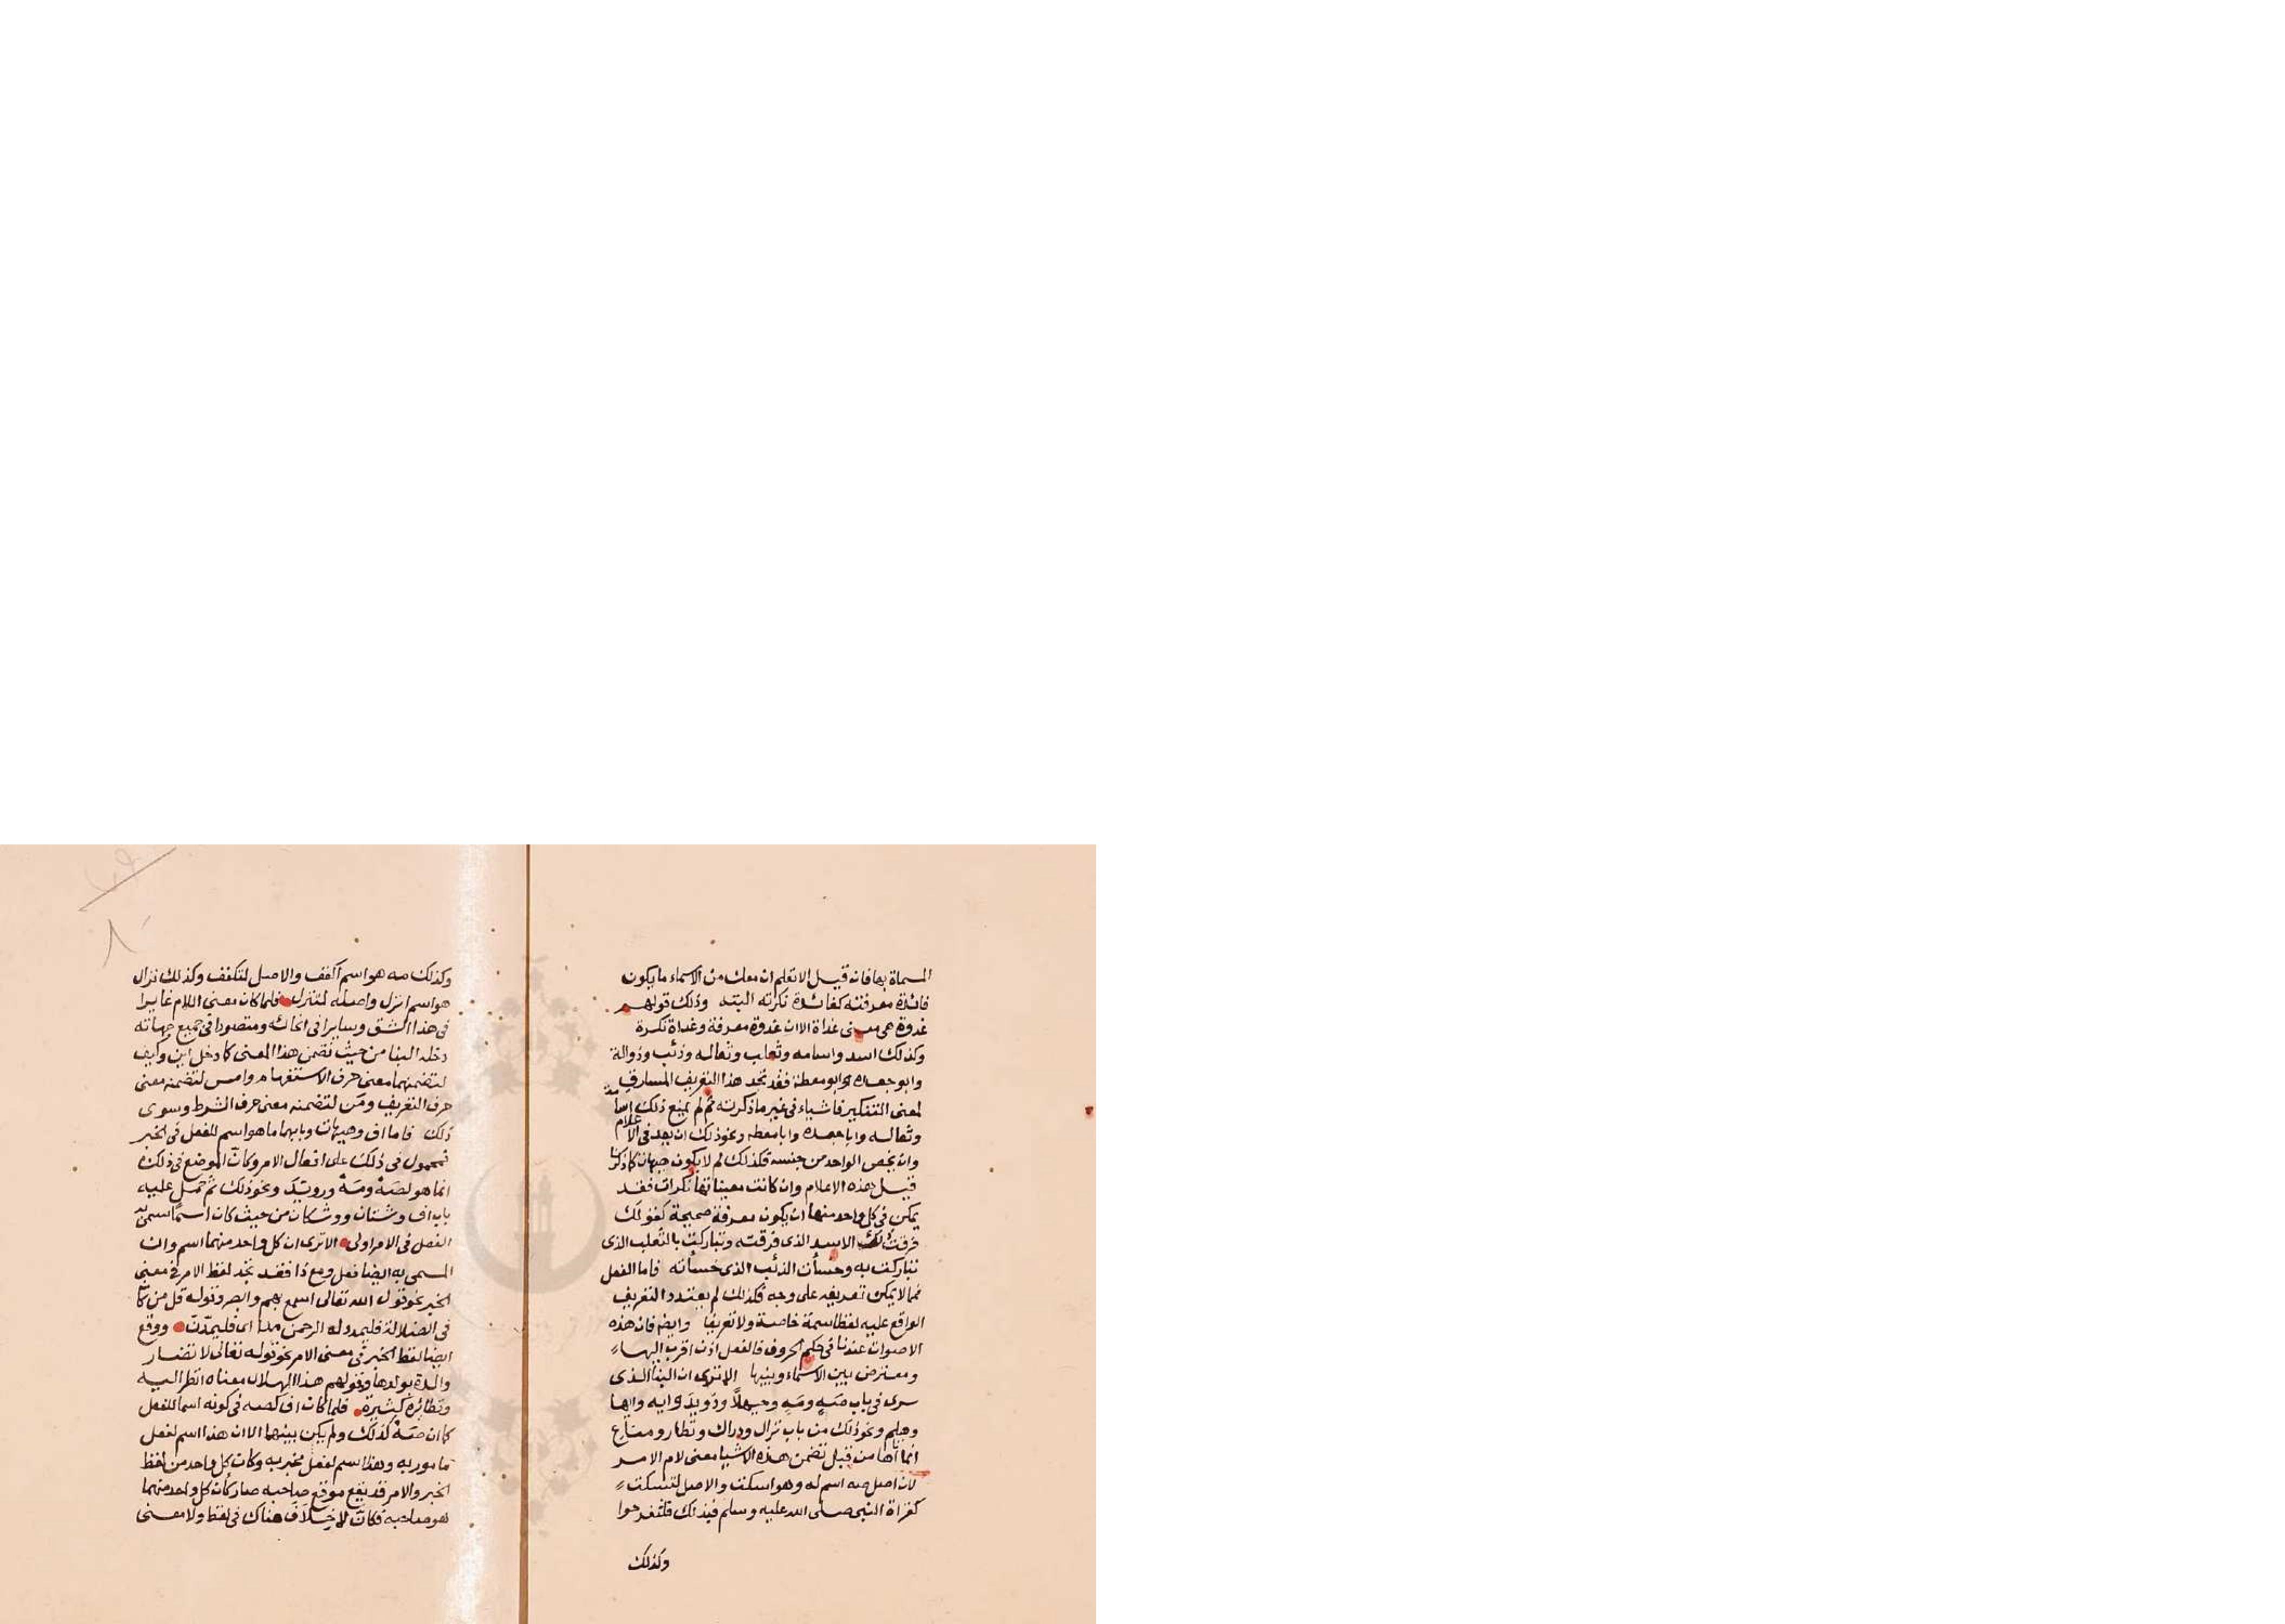 المسماة بها فان قيل الا تعلم ان معك من الاسماء ما يكون
فائدة معرفته كفائدة نكرته البتة وذلك قولهم
غدوة هي معنى غداة الا ان غدوة معرفة وغداة نكرة
وكذلك اسد واسامه وثعلب وثعاله وذئب وذوالة
وابو جعده وابو معطة فقد تجد هذا التعريف المساوق
لمعنى التنكير فاشياء في غير ما ذكرته ثم لم يمنع ذلك اسامة
وثعاله وابا جعده وابا معطه ونحو ذلك ان يعد في الاعلام
وان يخص الواحد من جنسه فكذلك لم لا يكون جيهان كما ذكرنا
قيل هذه الاعلام وان كانت معيناتها نكرات فقد
يمكن في كل واحد منها ان يكون معرفة صحيحة كقولك
فرقت ذلك الاسد الذي فرقته وتباركت بالثعلب الذي
تباركت به وخسأت الذئب الذي خسأته فاما الفعل
فما لا يمكن تعريفه على وجه فكذلك لم يعتدد التعريف
الواقع عليه لفظا سمة خاصة ولا تعريفا وايضا فان هذه
الاصوات عندنا في حكم الحروف فالفعل اذن اقرب اليها
ومعترض بين الاسماء وبينها الا ترى ان البنا الذي
سرى في باب صه ومه وحيهلا ورويد وايه وايها
وهلم ونحو ذلك من باب نزال ودراك ونظار ومناع
انما اتاها من قبل تضمن هذه الاشيا معنى لام الامر
لان اصل صه اسم له وهو اسكت والاصل لتسكت
كقراة النبي صلى الله عليه وسلم فبذلك فلتفرحوا
وكذلك
وكذلك مه هو اسم اكفف والاصل لتكفف وكذلك نزال
هو اسم انزل واصله لتنزل فلما كان معنى اللام غايرا
في هذا الشق وسايرا في انحائه ومتصورا في جميع جهاته
دخله البنا من حيث تضمن هذا المعنى كما دخل اين وكيف
لتضمنهما معنى حرف الاستفهام وامس لتضمنه معنى
حرف التعريف ومن لتضمنه معنى حرف الشرط وسوى
ذلك فاما اف وهيهات وبابهما ما هو اسم للفعل في الخبر
فمحمول في ذلك على افعال الامر وكان الموضع في ذلك
انما هو لصه ومه ورويد ونحو ذلك ثم حمل عليه
باب اف وشتان ووشكان من حيث كان اسما سمي به
الفعل في الامر اولى الا ترى ان كل واحد منهما اسم وان
المسمى به ايضا فعل ومع ذا فقد تجد لفظ الامر في معنى
الخبر نحو قول الله تعالى اسمع بهم وابصر وقوله قل من كان
في الضلالة فليمدد له الرحمن مدا اى فليمدن ووقع
ايضا لفظ الخبر في معنى الامر نحو قوله تعالى لا تضار
والدة بولدها وقولهم هذا الهلال معناه انظر اليه
ونظائره كثيرة فلما كان اف كصه في كونه اسما للفعل
كما ان صه كذلك ولم يكن بينهما الا ان هذا اسم لفعل
مامور به وهذا اسم لفعل مخبر به وكان كل واحد من لفظ
الخبر والامر قد يقع موقع صاحبه صار كأن كل واحد منهما
هو صاحبه فكان لا خلاف هناك في لفظ ولا معنى